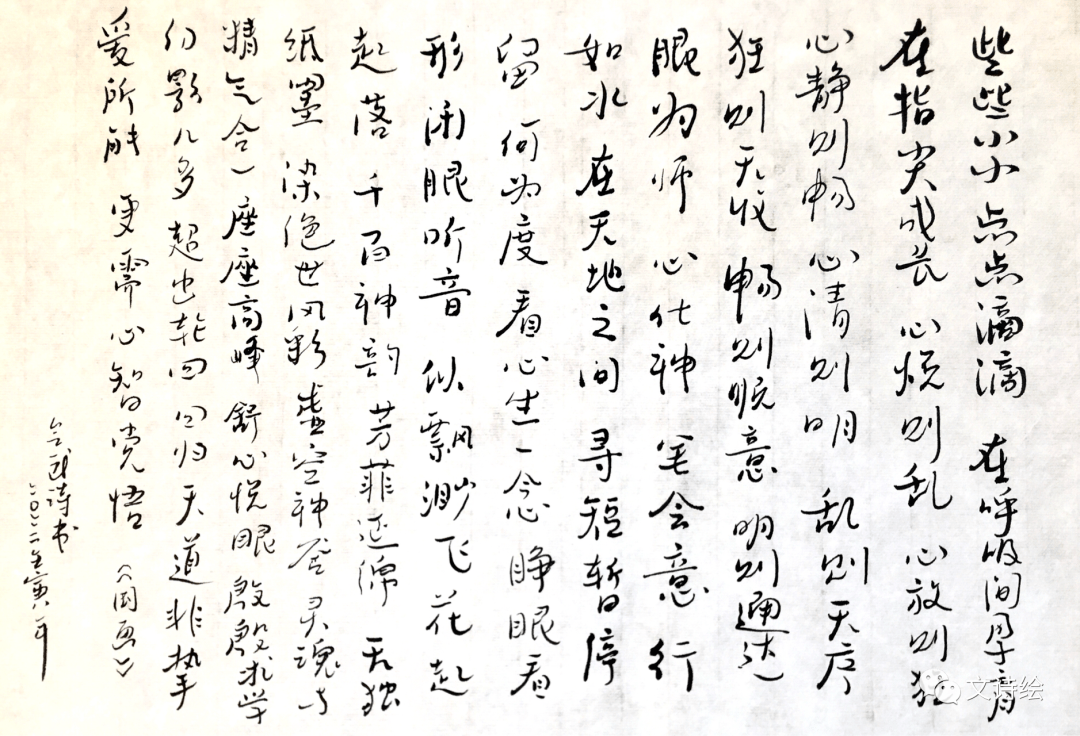 些些小小 点点滴滴 在呼吸间孕育
在指尖成长 心悦则乱 心放则狂
心静则畅 心清则明 乱则无序
狂则无收 畅则顺意 明则通达
眼为师 心化神 笔会意 行
如水 在天地之间 寻短暂停
留 何为度 看心生一念 睁眼看
形 闭眼听音 似飘渺飞花 起
起落 千百神韵 芳菲延绵 无独
纸墨 染绝世风彩 虚空神居 灵魂与
精气合一 座座高峰 舒心悦眼 殷殷求学
幻影几多 超出轮回 回归天道 非挚
爱所能 更需心智觉悟 《国画》
诗书
二〇二二壬寅年
文诗绘